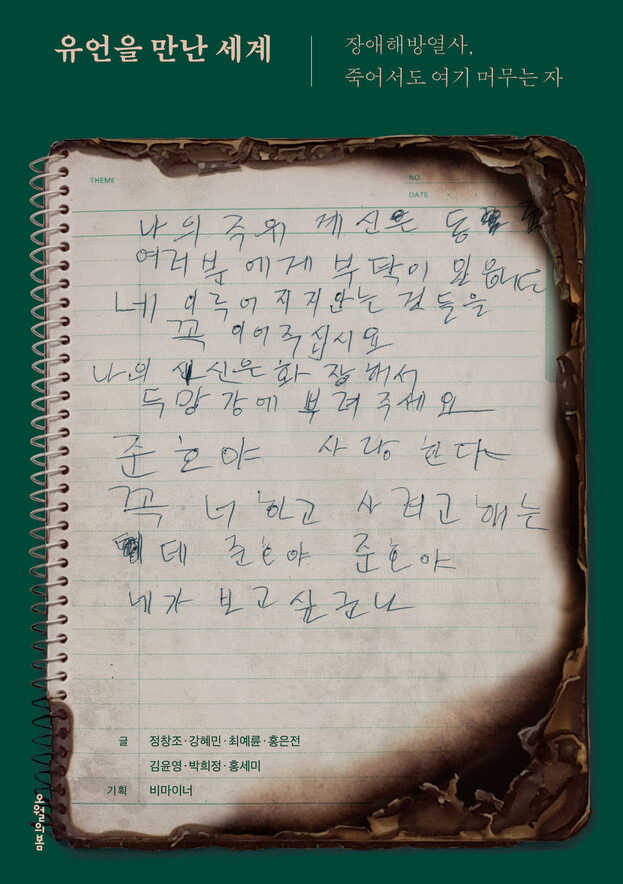 유언을 만난 세계
장애해방열사,
죽어서도 여기 머무는 자
THEME
NO.
DATE
나의 죽위 게 신은 동
여러분에게 부닥이 있읍니다
네 이루어지지 안는 것들을
꼭 이어주십시요
나의 신은 화장해서
두망강에 뿌려주세요
준호야 사랑한다
꼭 너하고 사려고 해는
데 준호야 준호야
네가 보고싶군나
글 정창조·강혜민·최예륜·홍은전
김윤영·박희정·홍세미
기획 비마이너
오월의봄